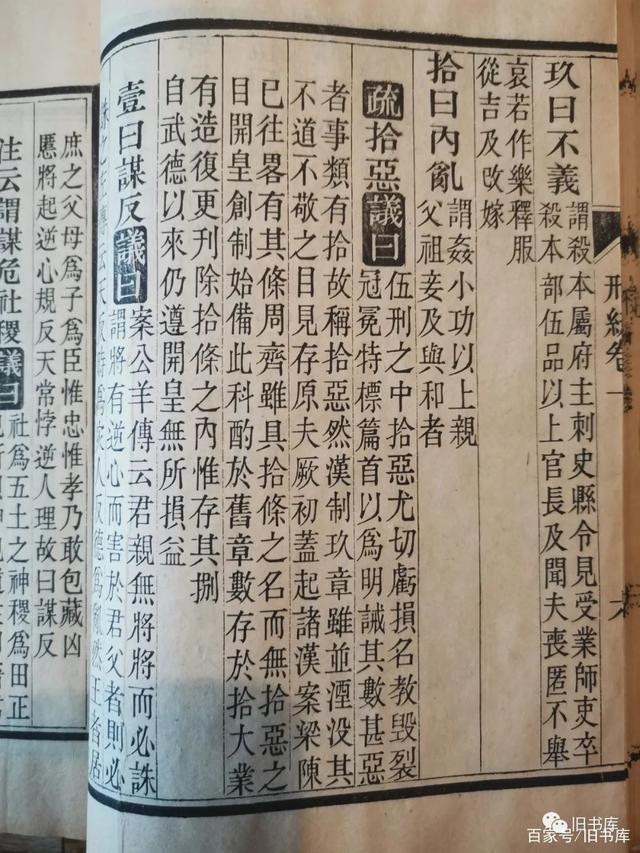 刑統卷一
六
玖曰不義
謂殺本屬府主刺史縣令見受業師吏卒
殺本部伍品以上官長及聞夫喪匿不舉
哀若作樂釋服
從吉及改嫁
拾曰內亂
謂姦小功以上親
父祖妾及與和者
疏拾惡議曰
伍刑之中拾惡尤切虧損名教毀裂
冠冕特標篇首以爲明誡其數甚惡
者事類有拾故稱拾惡然漢制玖章雖並湮沒其
不道不敬之目見存原夫厥初蓋起諸漢案梁陳
已往畧有其條周齊雖具拾條之名而無拾惡之
目開皇創制始備此科酌於舊章數存於拾大業
有造復更刊除拾條之內惟存其捌
自武德以來仍遵開皇無所損益
壹曰謀反議曰
案公羊傳云君親無將將而必誅
謂將有逆心而害於君父者則必
人反德爲亂然王者居
庶之父母爲子爲臣惟忠惟孝乃敢包藏凶
慝將起逆心規反天常悖逆人理故曰謀反
住云謂謀危社稷議曰
社爲五土之神稷爲田正
旧书库
百家号/旧书库